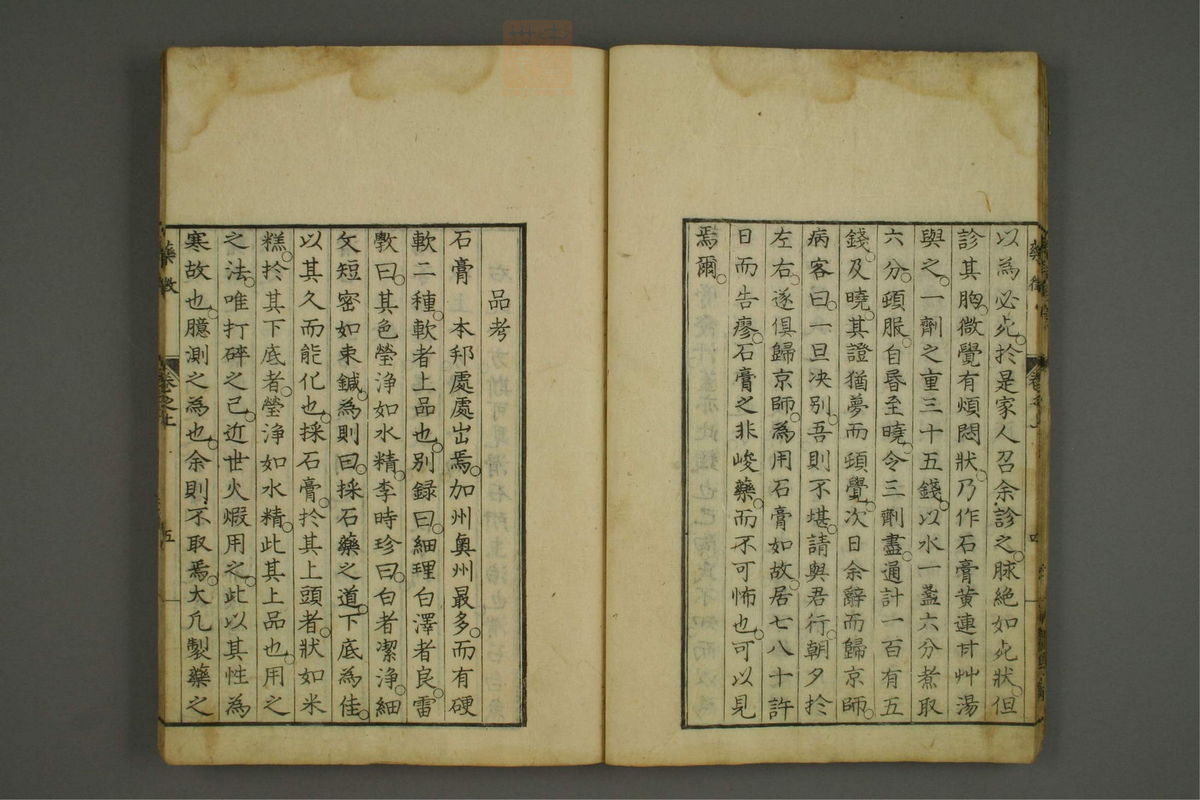 以為必死。於是家人召余診之。脉絕如死狀。但
診其胸。微覺有煩悶狀。乃作石膏黃連甘艸湯
與之。一劑之重三十五錢。以水一盞六分煮取
六分。頓服。自昏至曉。令三劑盡。通計一百有五
錢。及曉。其證猶夢而頓覺。次日余辭而歸京師。
病客曰。一旦决別。吾則不堪。請與君行。朝夕於
左右。遂俱歸京師。為用石膏如故。居七八十許
日而告瘳。石膏之非峻藥。而不可怖也。可以見
焉爾。
品考
石膏　本邦處處出焉。加州奧州最多。而有硬
軟二種。軟者上品也。別録曰。細理白澤者良。雷
斅曰。其色瑩淨如水精。李時珍曰。白者潔淨。細
文短密如束鍼。為則曰。採石藥之道。下底為佳。
以其久而能化也。採石膏。於其上頭者。狀如米
糕。於其下底者。瑩淨如水精。此其上品也。用之
之法。唯打碎之已。近世火煆用之。此以其性為
寒故也。臆測之為也。余則不取焉。大凡製藥之
藥徵
卷之上
五